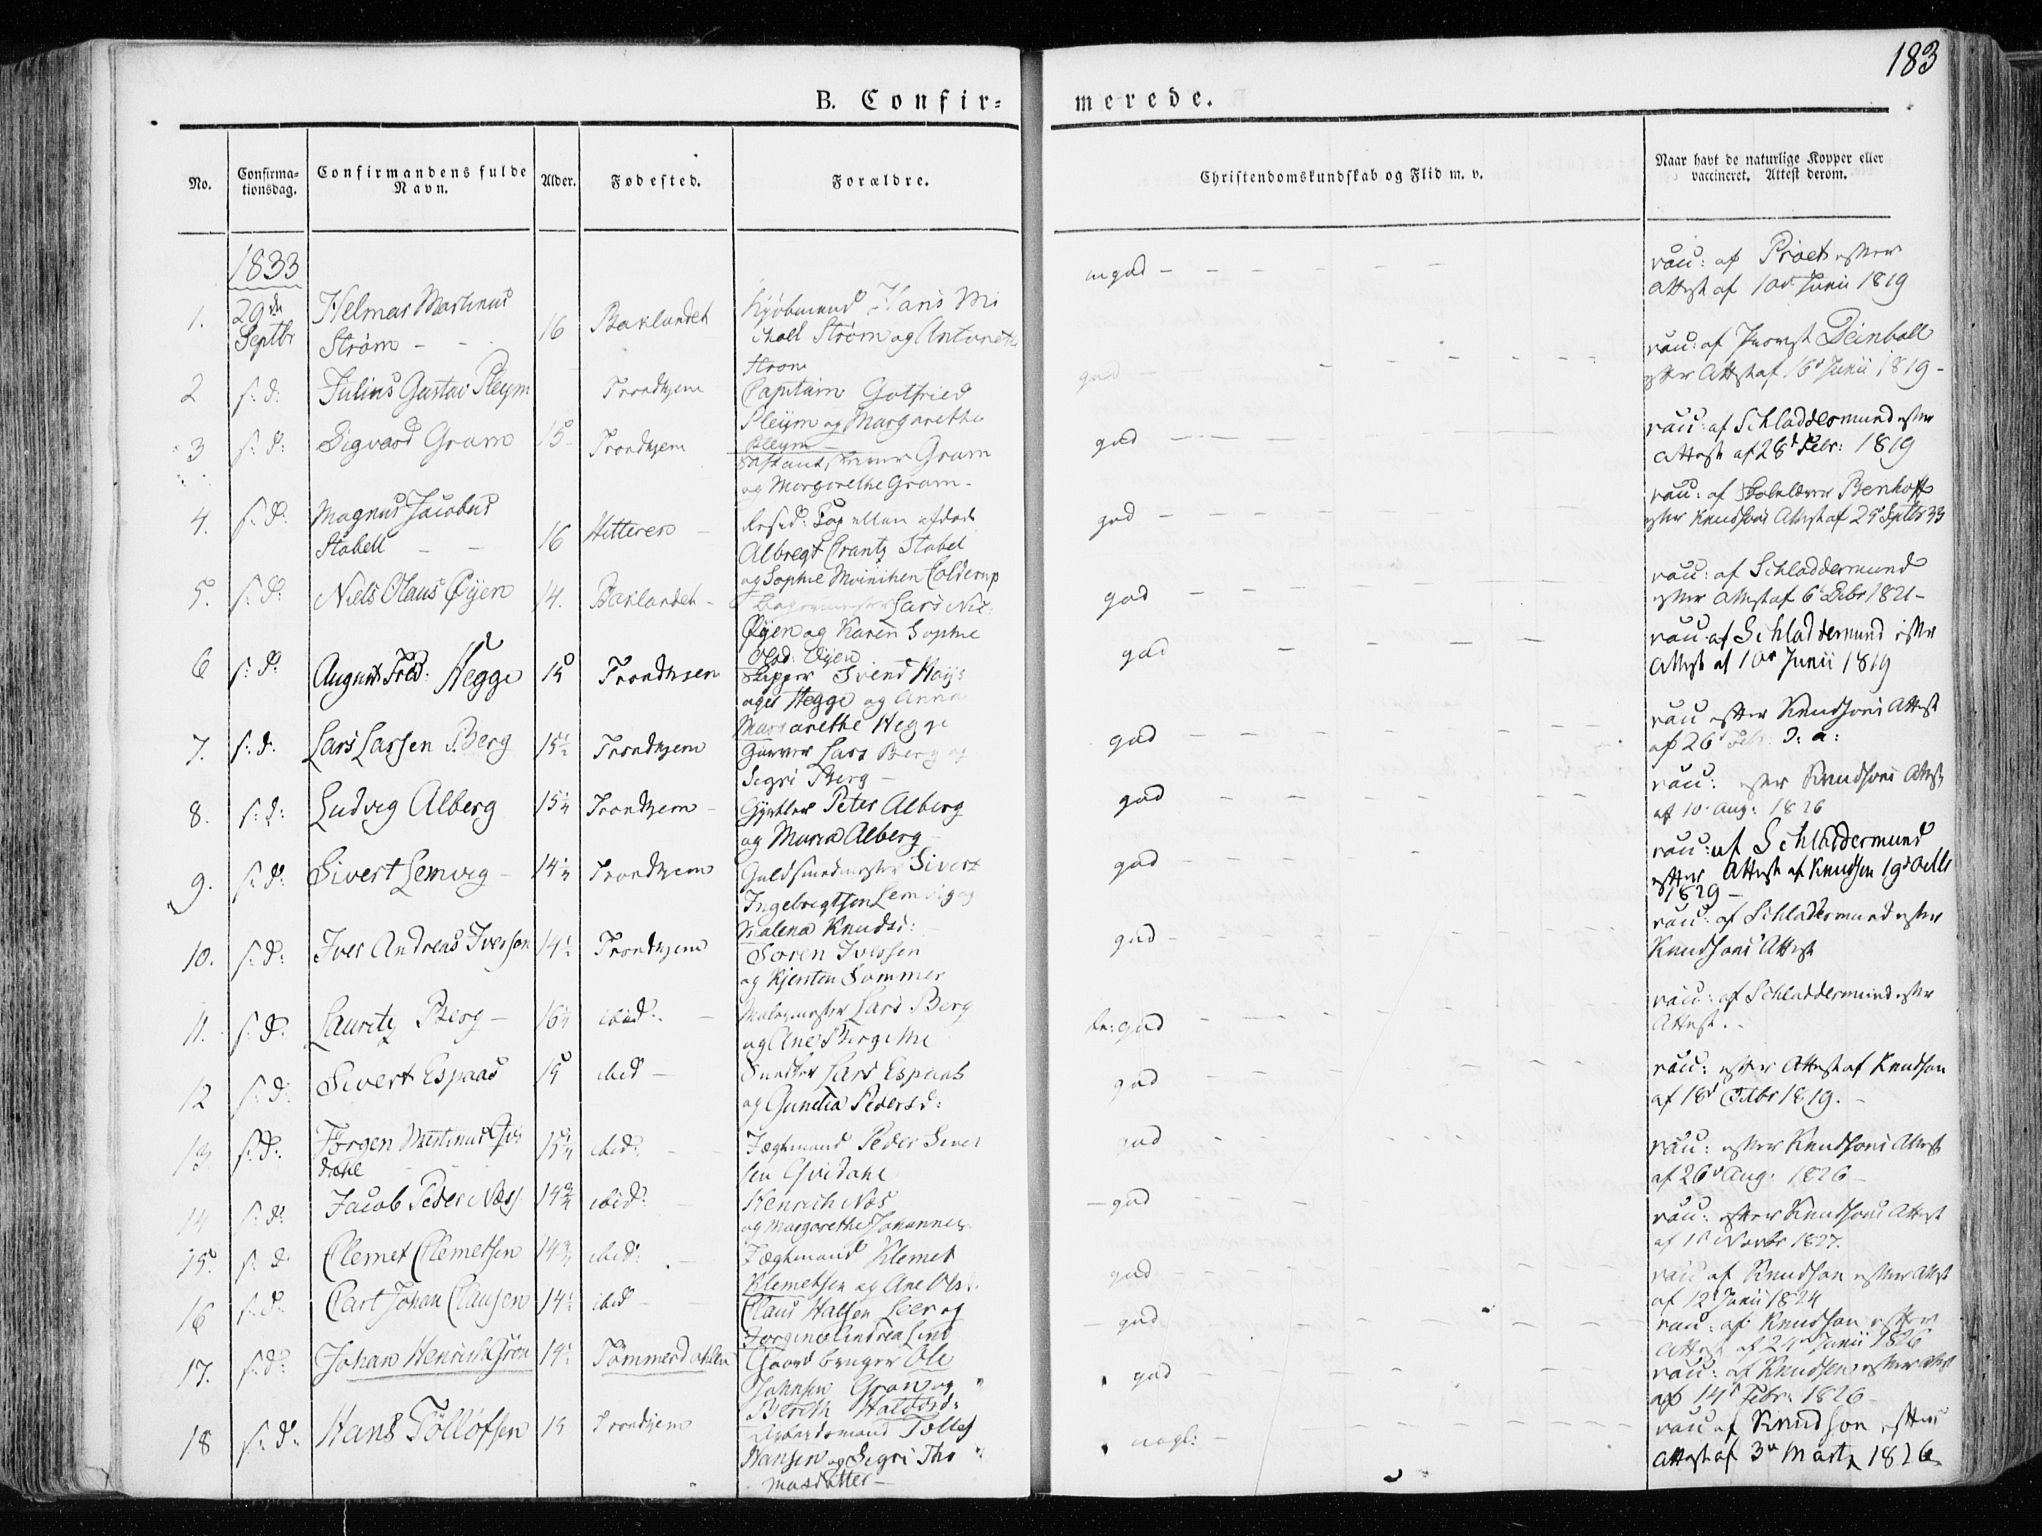 183
B. Confir=
merede.
No.
Confirma-
tionsdag.
Confirmandens fulde
Navn.
Alder.
Fødested.
Forældre.
Christendomskundskab og Flid m. v.
Naar havt de naturlige Kopper eller
vaccineret. Attest derom.
1833
1. 29de Septbr Helmar Martinus
Strøm - - 16 Baklandet Kjøbmand Hans Mi
chall Strøm og Antonette
Strøm
mgod
vac: af Proet efter
Attest af 10de Junii 1819
2 s: d: Julius Gustav Pleym Trondhjem Capitain Gotfried
Pleym og Margarethe
Pleym
god
vac: af Provst Deinboll
efter Attest af 16d Junii 1819-
3 s: d: Sigvard Gram 15 Trondhjem Gram
og Margarethe Gram-
god
vac: af Schladdermund efter
Attest af 28d Febr: 1819
4. s: d: Magnus Jacobus
Stabell - - 16 Hitteren - Resid: Capellan afdøde
Albregt Crantz Stabel
og Sophie Moinichen Colderup
god
vac: af Benhoff
efter Knudsons Attest af 29 Septbr 33
5. s: d: Niels Olaus Øyen 14. Baklandet - Lars Nic:
Øyen og Karen Sophie
Øyen
god
vac: af Schladdermund
efter Attest af 6 1821-
6 s: d: August Fred: Hegge 15 Trondhjem Skipper Svend
Hegge og Anna
Margarethe Hegge
god
vac: af Schladdermund efter
Attest af 10de Junii 1819
7. s: d: Lars Larsen Berg 15½ Trondhjem Garver Lars Berg og
Segri Berg -
god
vac efter Knudsons Attest
af 26d Febr: d: a:
8. s: d: Ludvig Alberg 15¼ Trondhjem - Gjørtler Peter Alberg
og Maria Alberg -
god
vac: efter Knudsons Attest
af 10 Aug: 1826
9. s: d: Sivert Lemvig - 14½ Trondhjem Guldsmedmester Sivert
Ingebregtsen Lemvig og
Malena Knudsd:
god
vac: af Schladdermund
efter Attest af Knudson 19d Octb
1829 -
10. s: d: Iver Andreas Iversen 14½ Trondhjem Søren Iversen
og Kjersten Sommer
god
vac: af Schladdermund efter
Knudsons Attest
11. s: d: Lauritz Berg - 16¼ ibid: - Malermester Lars Berg
og Ane Berg
te: god
vac: af Schladdermund efter
Attest. -
12 s: d: Sivert Espaas 15 ibid - Lars Espaas
og Gunelia Pedersd:
god
vac: efter Attest af Knudson
af 18d 1819. -
13 s: d: Jørgen Martinus Qvi
dahl 15¼ ibid: - Fægtmand Peder Siver
sen Qvidahl
god
vac: efter Knudsons Attest
af 26d Aug: 1826 -
14 s: d: Jacob Peder Næss 14¾ ibid: - Henrich Næs
og Margarethe Johannes
- god
vac: efter Knudsons Attest
af 1d Novbr 1827.
15. s: d: Clemet Clemetsen 14¾ ibid: - Fægtmand Klemet
Klemetsen og Ane Olsd:
god
vac af Knudson efter Attest
af 12d Junii 1824
16 s: d: Carl Johan Clausen 14½ ibid - - Claus Halsen Leer og
Jørgine Andrea Lind
- god
vac: af Knudson efter
Attest af 24d Junii 1826
17. s: d: Johan Henrich Grøn 14½ Tømmerdahlen Gaardbruger Ole
Johnsen Grøn og
Bereth Halvorsd:
god
vac: af Knudson efter Attest
af 14d Febr: 1826 -
18 s: d: Hans Tøllofsen 15 Trondhjem Arbeidsmand Tollef
Hansen og Segri Tho
masdatter -
nogl: -
vac af Knudson efter
Attest af 3de Martz 1826